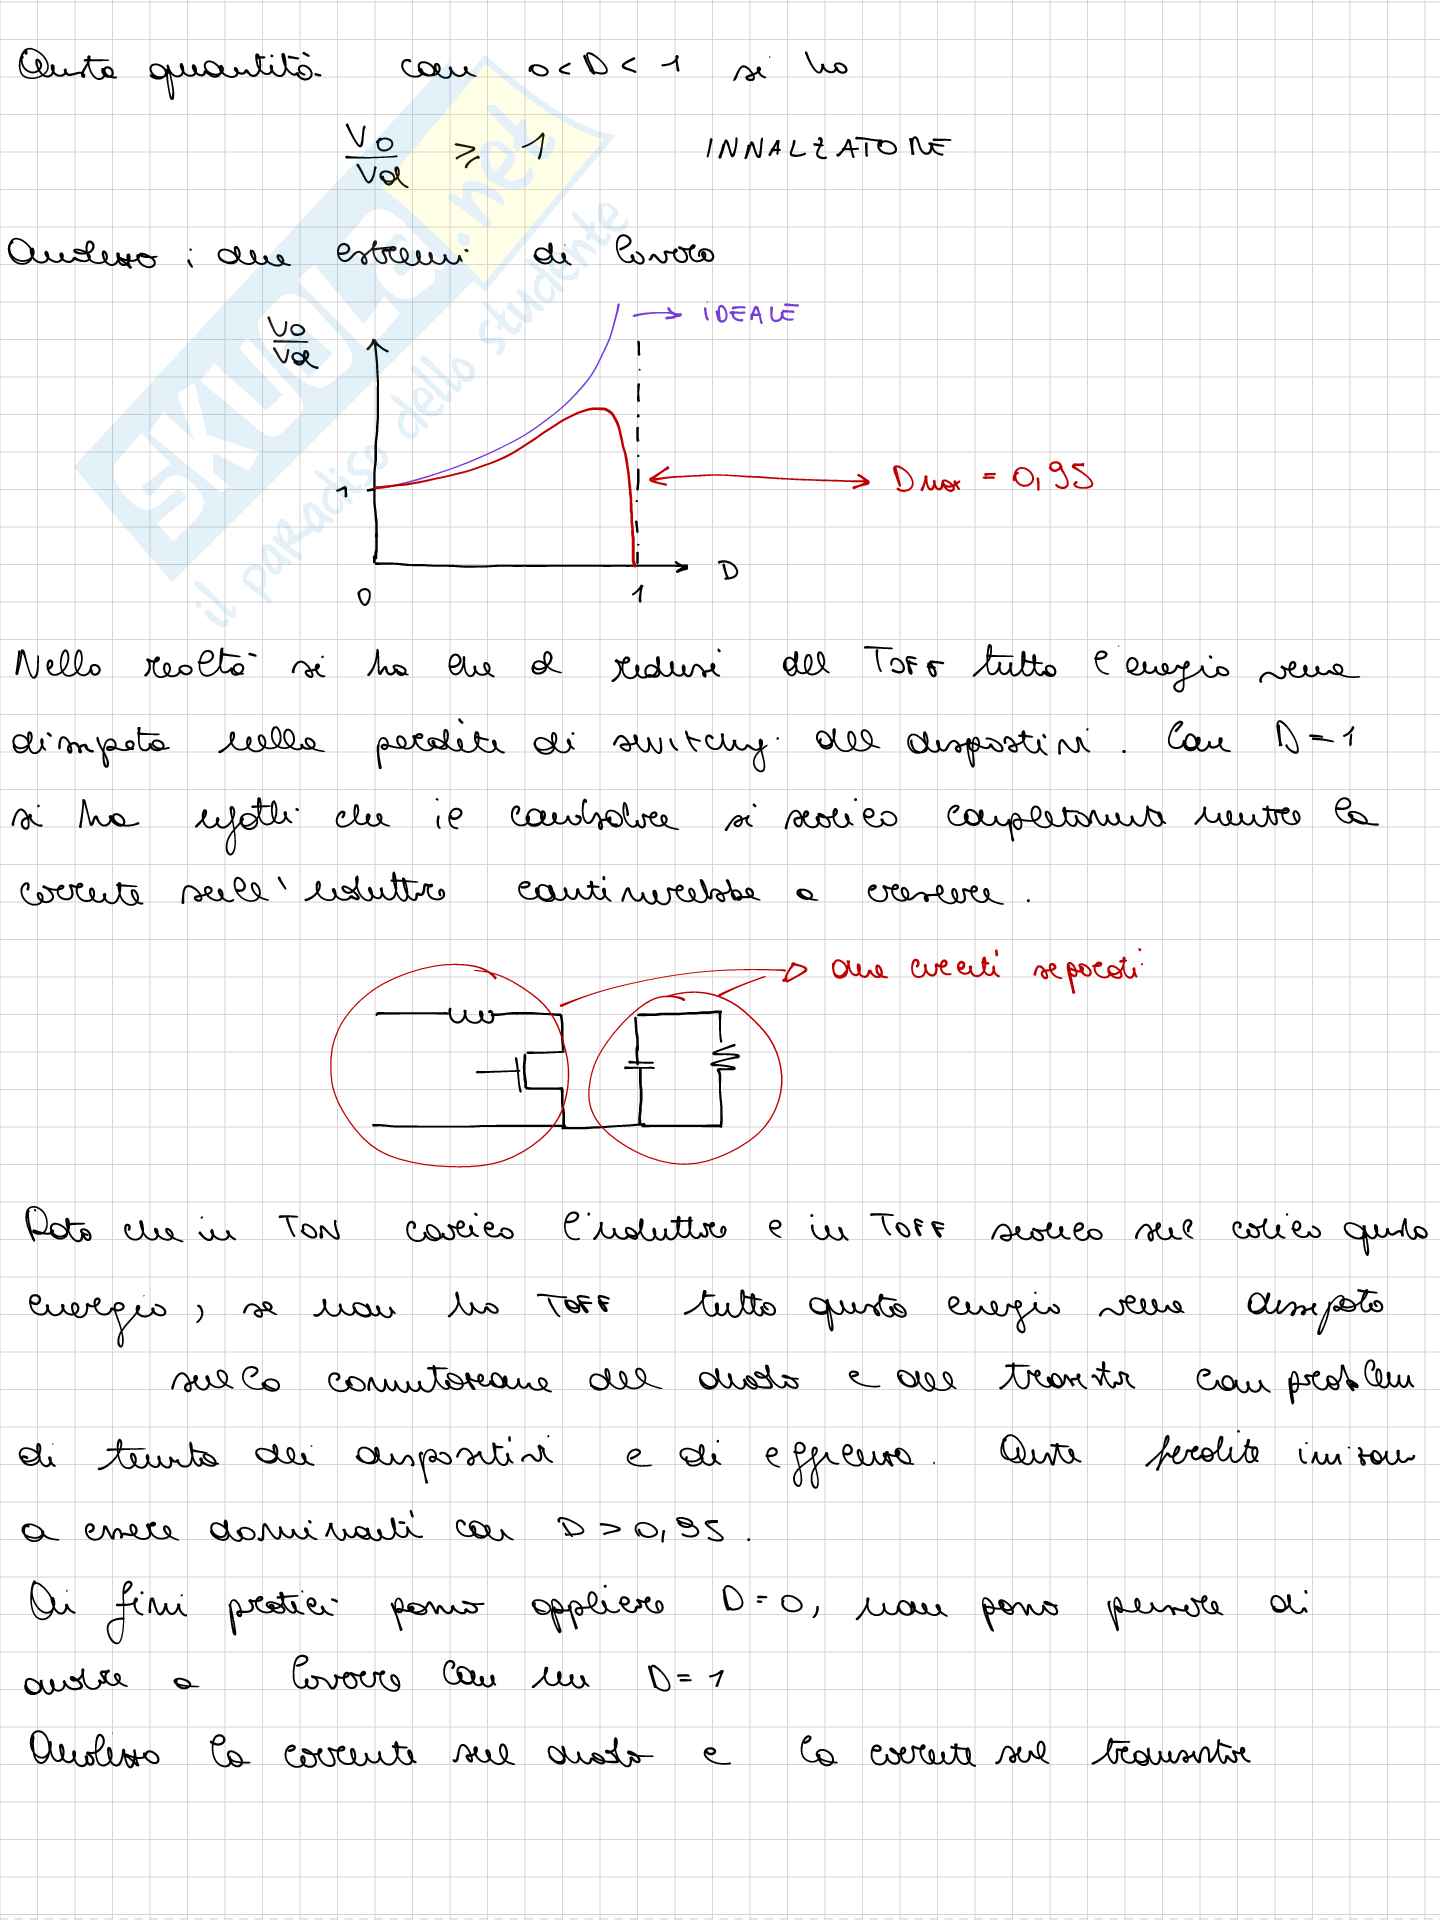 Questa quantità con 0 < D < 1 si ha
Vo/Vd ≥ 1 INNALZATORE
Analizzo i due estremi di lavoro
Vo/Vd
→ IDEALE
1
Dmax = 0,95
D
0
1
Nella realtà si ha che al ridursi del TOFF tutta l'energia viene
dissipata nelle perdite di switching dei dispositivi. Con D = 1
si ha infatti che il condensatore si scarica completamente mentre la
corrente sull'induttore continuerebbe a crescere.
due circuiti separati
Dato che in TON carico l'induttore e in TOFF scarico sul carico questa
energia, se non ho TOFF tutta questa energia viene dissipata
sulla commutazione del diodo e del transistor con problemi
di tenuta dei dispositivi e di efficienza. Queste perdite iniziano
a essere dominanti con D > 0,95.
Ai fini pratici posso applicare D = 0, non posso pensare di
andare a lavorare con un D = 1
Analizzo la corrente sul diodo e la corrente sul transistor
SKUOLA.net
il paradiso dello studente